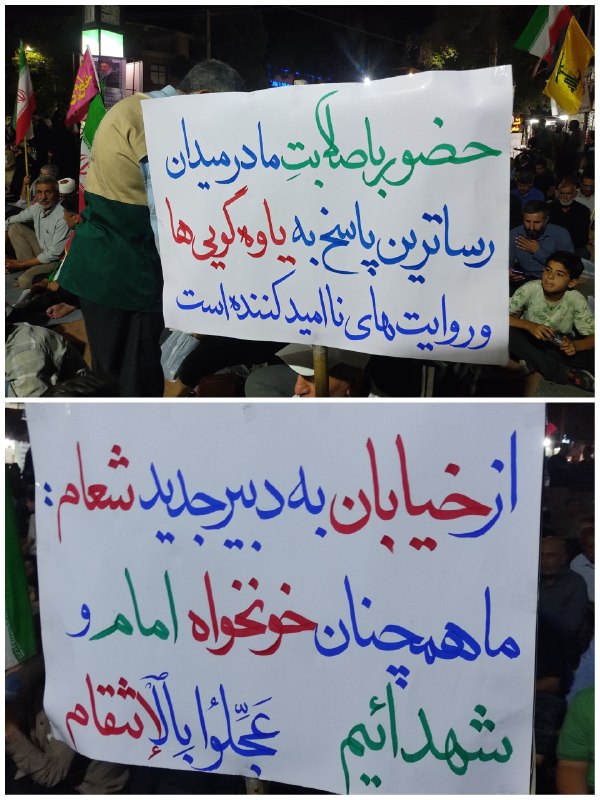 حضور باصلابتِ ما در میدان
رساترین پاسخ به یاوه گویی ها
و روایت های ناامید کننده است
از خیابان به دبیر جدید شعام :
ما همچنان خونخواه امام و
شهدائیم عَجِّلوُا بِالْإنتقام